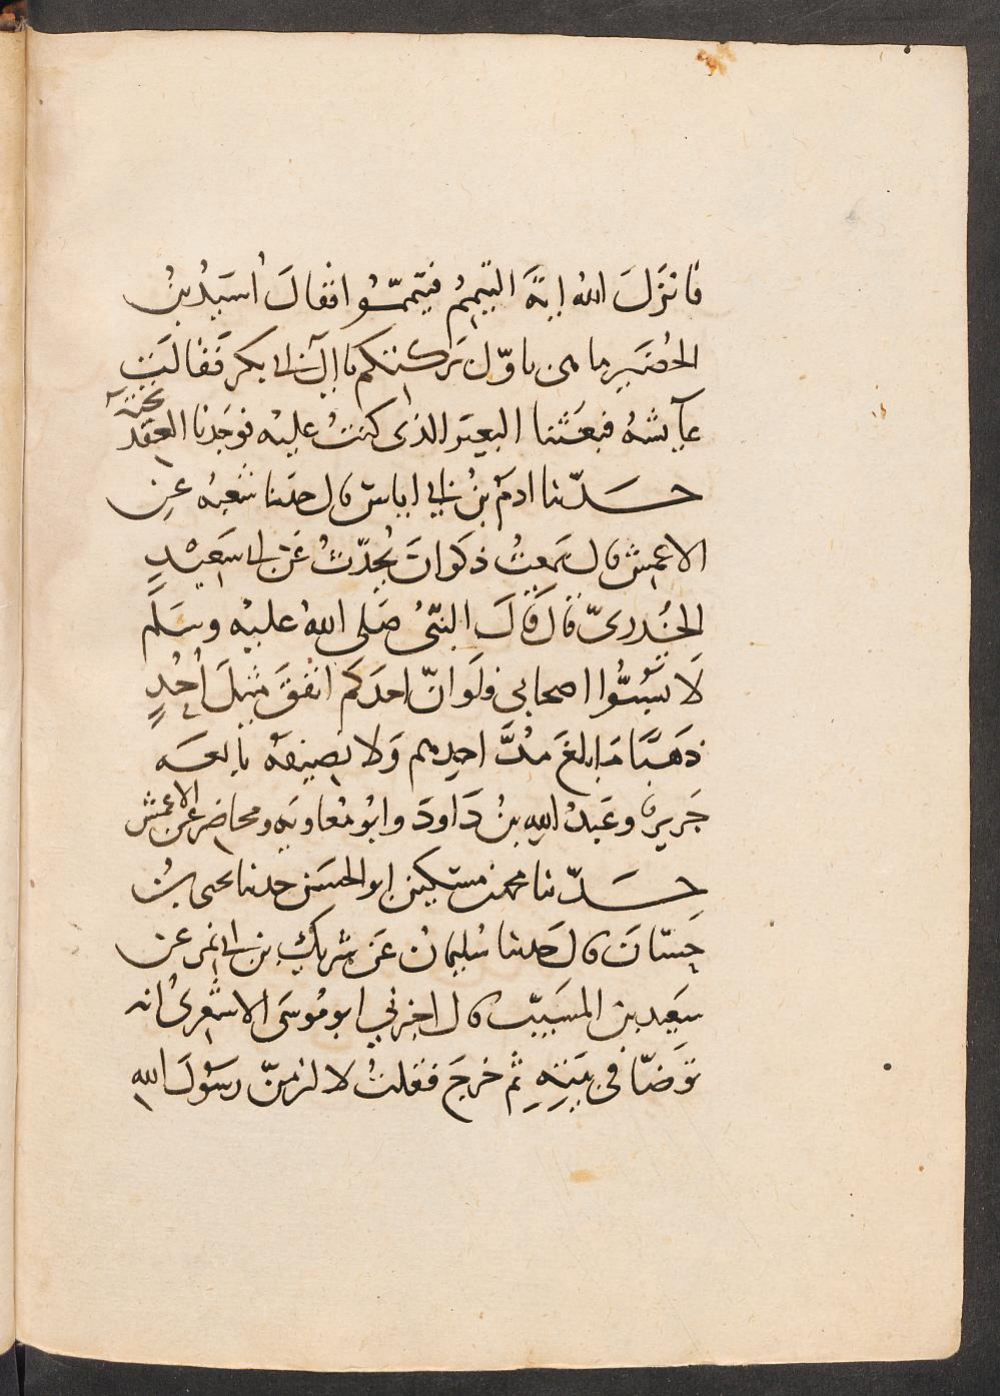 فانزَلَ اللهُ ايةَ التيمم فتيمَّمُوا فقالَ اُسَيدُ بنُ
الحُضَيرِ ما هى باوّل بَركتكم يا آل ابى بكر فقالَت
عآيشةُ فبعَثنا البعيَر الذى كنتُ عليه فوَجَدنا العِقدَ تحتهَ
حــدّثنا ادمُ بنُ ابى اياسٍ قال حدثنا شعبهُ عن
الاعمش قال سَمعتُ ذكوانَ يُحدّثُ عَن ابى سَعِيْدٍ
الخُدرىّ قال قَالَ النبَىُّ صَلى اللهُ عليه وسَلمَ
لَا تسُبُّوا اصحابى فلَو انّ احدَكم انفقَ مِثلَ اُحُدٍ
ذهَبًا مَا بلغَ مُدَّ احدِهم وَلا نصِيفهُ تابعَـه
جَرِير وعَبدُ اللهِ بنُ دَاودَ وابوُ مُعاويَه ومحاضر عَن الاعمش
حــدّثنا محمد بن مسكين ابو الحسَن حدثنا يحيى بنُ
حسّانَ قال حَدثنا سُليمانُ عَن شَريكِ بن ابى نمر عَن
سَعِيد بن المسَيبّ قال اخبرَنى ابو مُوسَى الاشعرىُ انه
توَضّا فى بَيتِهِ ثم خرجَ فقلتُ لا لزمنّ رسُولَ الله